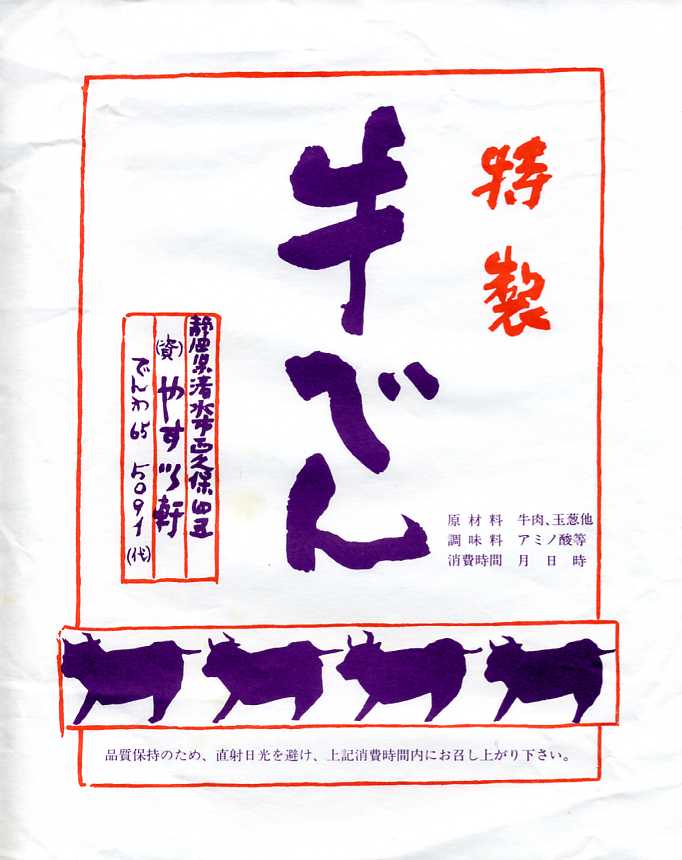 特製
牛でん
原材料 牛肉、玉葱他
調味料 アミノ酸等
消費時間 月 日 時
静岡県清水市西久保四五
(資)やすい軒
でんわ 65 5091 (代)
品質保持のため、直射日光を避け、上記消費時間内にお召し上がり下さい。